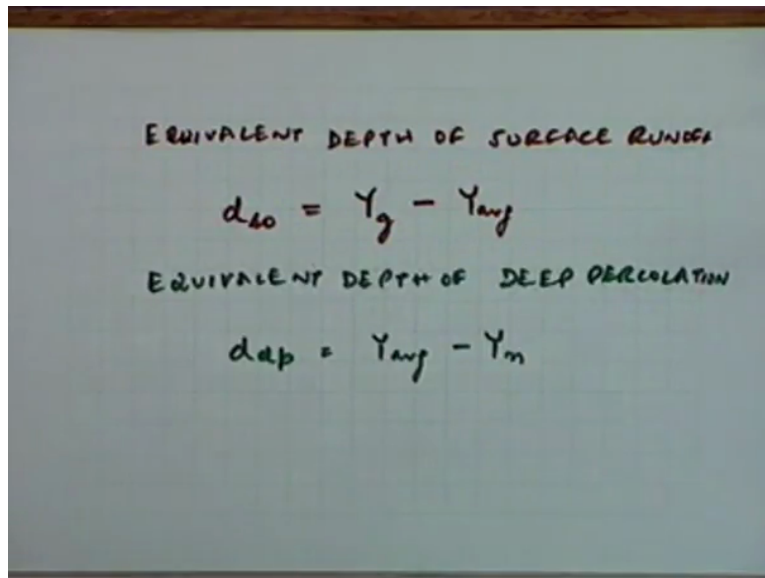 EQUIVALENT DEPTH OF SURFACE RUNOFF
d_so = Y_g - Y_avg
EQUIVALENT DEPTH OF DEEP PERCOLATION
d_dp = Y_avg - Y_n